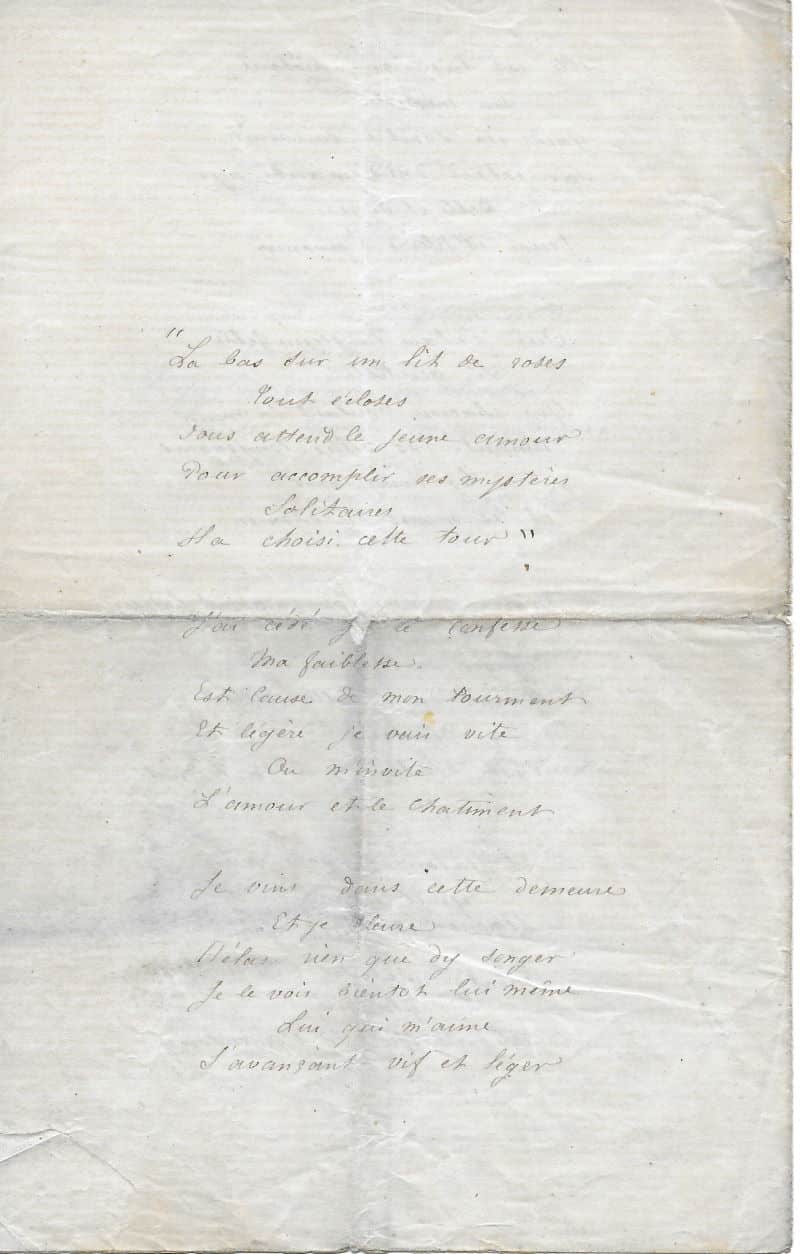 "
La bas sur un lit de roses
Tout écloses
Vous attend le jeune amour
Pour accomplir ses mystères
Solitaires
Il a choisi cette tour "
J'ai cédé je le confesse
Ma faiblesse.
Est cause de mon tourment
Et légère je vais vite
Ou m'invite
L'amour et le chatiment
Je vins dans cette demeure
Et je pleure
Hélas rien que dy songer
Je le vois bientot lui même
Lui qui m'aime
S'avançant vif et léger